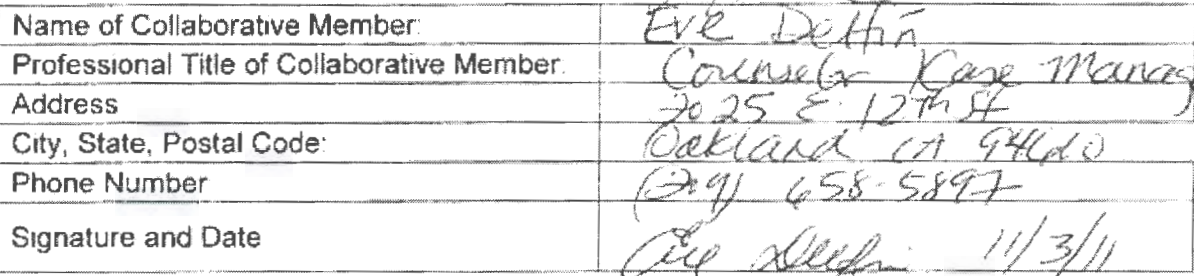 Name of Collaborative Member: Eve
Professional Title of Collaborative Member: Counselor / Case Manag
Address 2025 E. 12th St
City, State, Postal Code: Oakland CA
Phone Number 658-5897
Signature and Date Eve 11/3/11